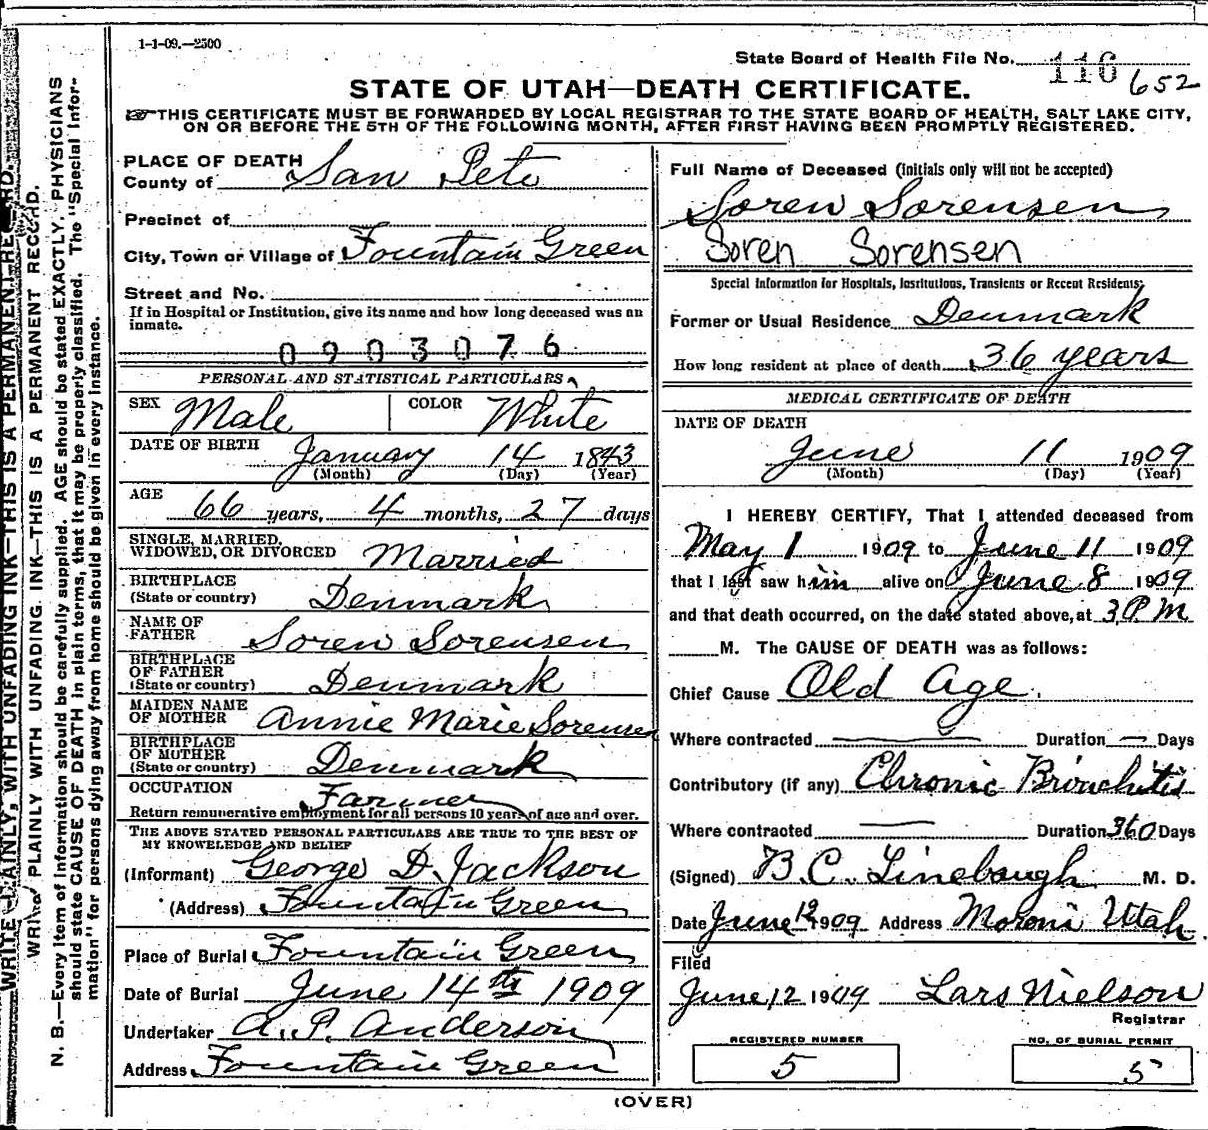 1-1-09.—2500
State Board of Health File No. 116 652
STATE OF UTAH—DEATH CERTIFICATE.
☞THIS CERTIFICATE MUST BE FORWARDED BY LOCAL REGISTRAR TO THE STATE BOARD OF HEALTH, SALT LAKE CITY,
ON OR BEFORE THE 5TH OF THE FOLLOWING MONTH, AFTER FIRST HAVING BEEN PROMPTLY REGISTERED.
PLACE OF DEATH
County of San Pete
Precinct of
City, Town or Village of Fountain Green
Street and No.
If in Hospital or Institution, give its name and how long deceased was an
inmate.
0903076
PERSONAL AND STATISTICAL PARTICULARS
SEX Male COLOR White
DATE OF BIRTH January 14 1843
(Month) (Day) (Year)
AGE
66 years, 4 months, 27 days
SINGLE, MARRIED,
WIDOWED, OR DIVORCED Married
BIRTHPLACE
(State or country) Denmark
NAME OF
FATHER Soren Sorensen
BIRTHPLACE
OF FATHER
(State or country) Denmark
MAIDEN NAME
OF MOTHER Annie Marie Sorensen
BIRTHPLACE
OF MOTHER
(State or country) Denmark
OCCUPATION Farmer
Return remunerative employment for all persons 10 years of age and over.
THE ABOVE STATED PERSONAL PARTICULARS ARE TRUE TO THE BEST OF
MY KNOWLEDGE AND BELIEF
(Informant) George D. Jackson
(Address) Fountain Green
Place of Burial Fountain Green
Date of Burial June 14th 1909
Undertaker A. P. Anderson
Address Fountain Green
Full Name of Deceased (initials only will not be accepted)
Soren Sorensen
Soren Sorensen
Special Information for Hospitals, Institutions, Transients or Recent Residents:
Former or Usual Residence Denmark
How long resident at place of death 36 years
MEDICAL CERTIFICATE OF DEATH
DATE OF DEATH
June 11 1909
(Month) (Day) (Year)
I HEREBY CERTIFY, That I attended deceased from
May 1 1909 to June 11 1909
that I last saw him alive on June 8 1909
and that death occurred, on the date stated above, at 3 P.M
M. The CAUSE OF DEATH was as follows:
Chief Cause Old Age.
Where contracted — Duration — Days
Contributory (if any) Chronic Bronchitis
Where contracted — Duration 360 Days
(Signed) B. C. Linebaugh M. D.
Date June 12 1909 Address Moroni Utah.
Filed
June 12 1909 Lars Nielson
Registrar
REGISTERED NUMBER NO. OF BURIAL PERMIT
5 5
(OVER)
WRITE PLAINLY, WITH UNFADING INK—THIS IS A PERMANENT RECORD.
WRITE PLAINLY WITH UNFADING INK—THIS IS A PERMANENT RECORD.
N. B.—Every item of information should be carefully supplied. AGE should be stated EXACTLY. PHYSICIANS
should state CAUSE OF DEATH in plain terms, that it may be properly classified. The "Special Infor-
mation" for persons dying away from home should be given in every instance.